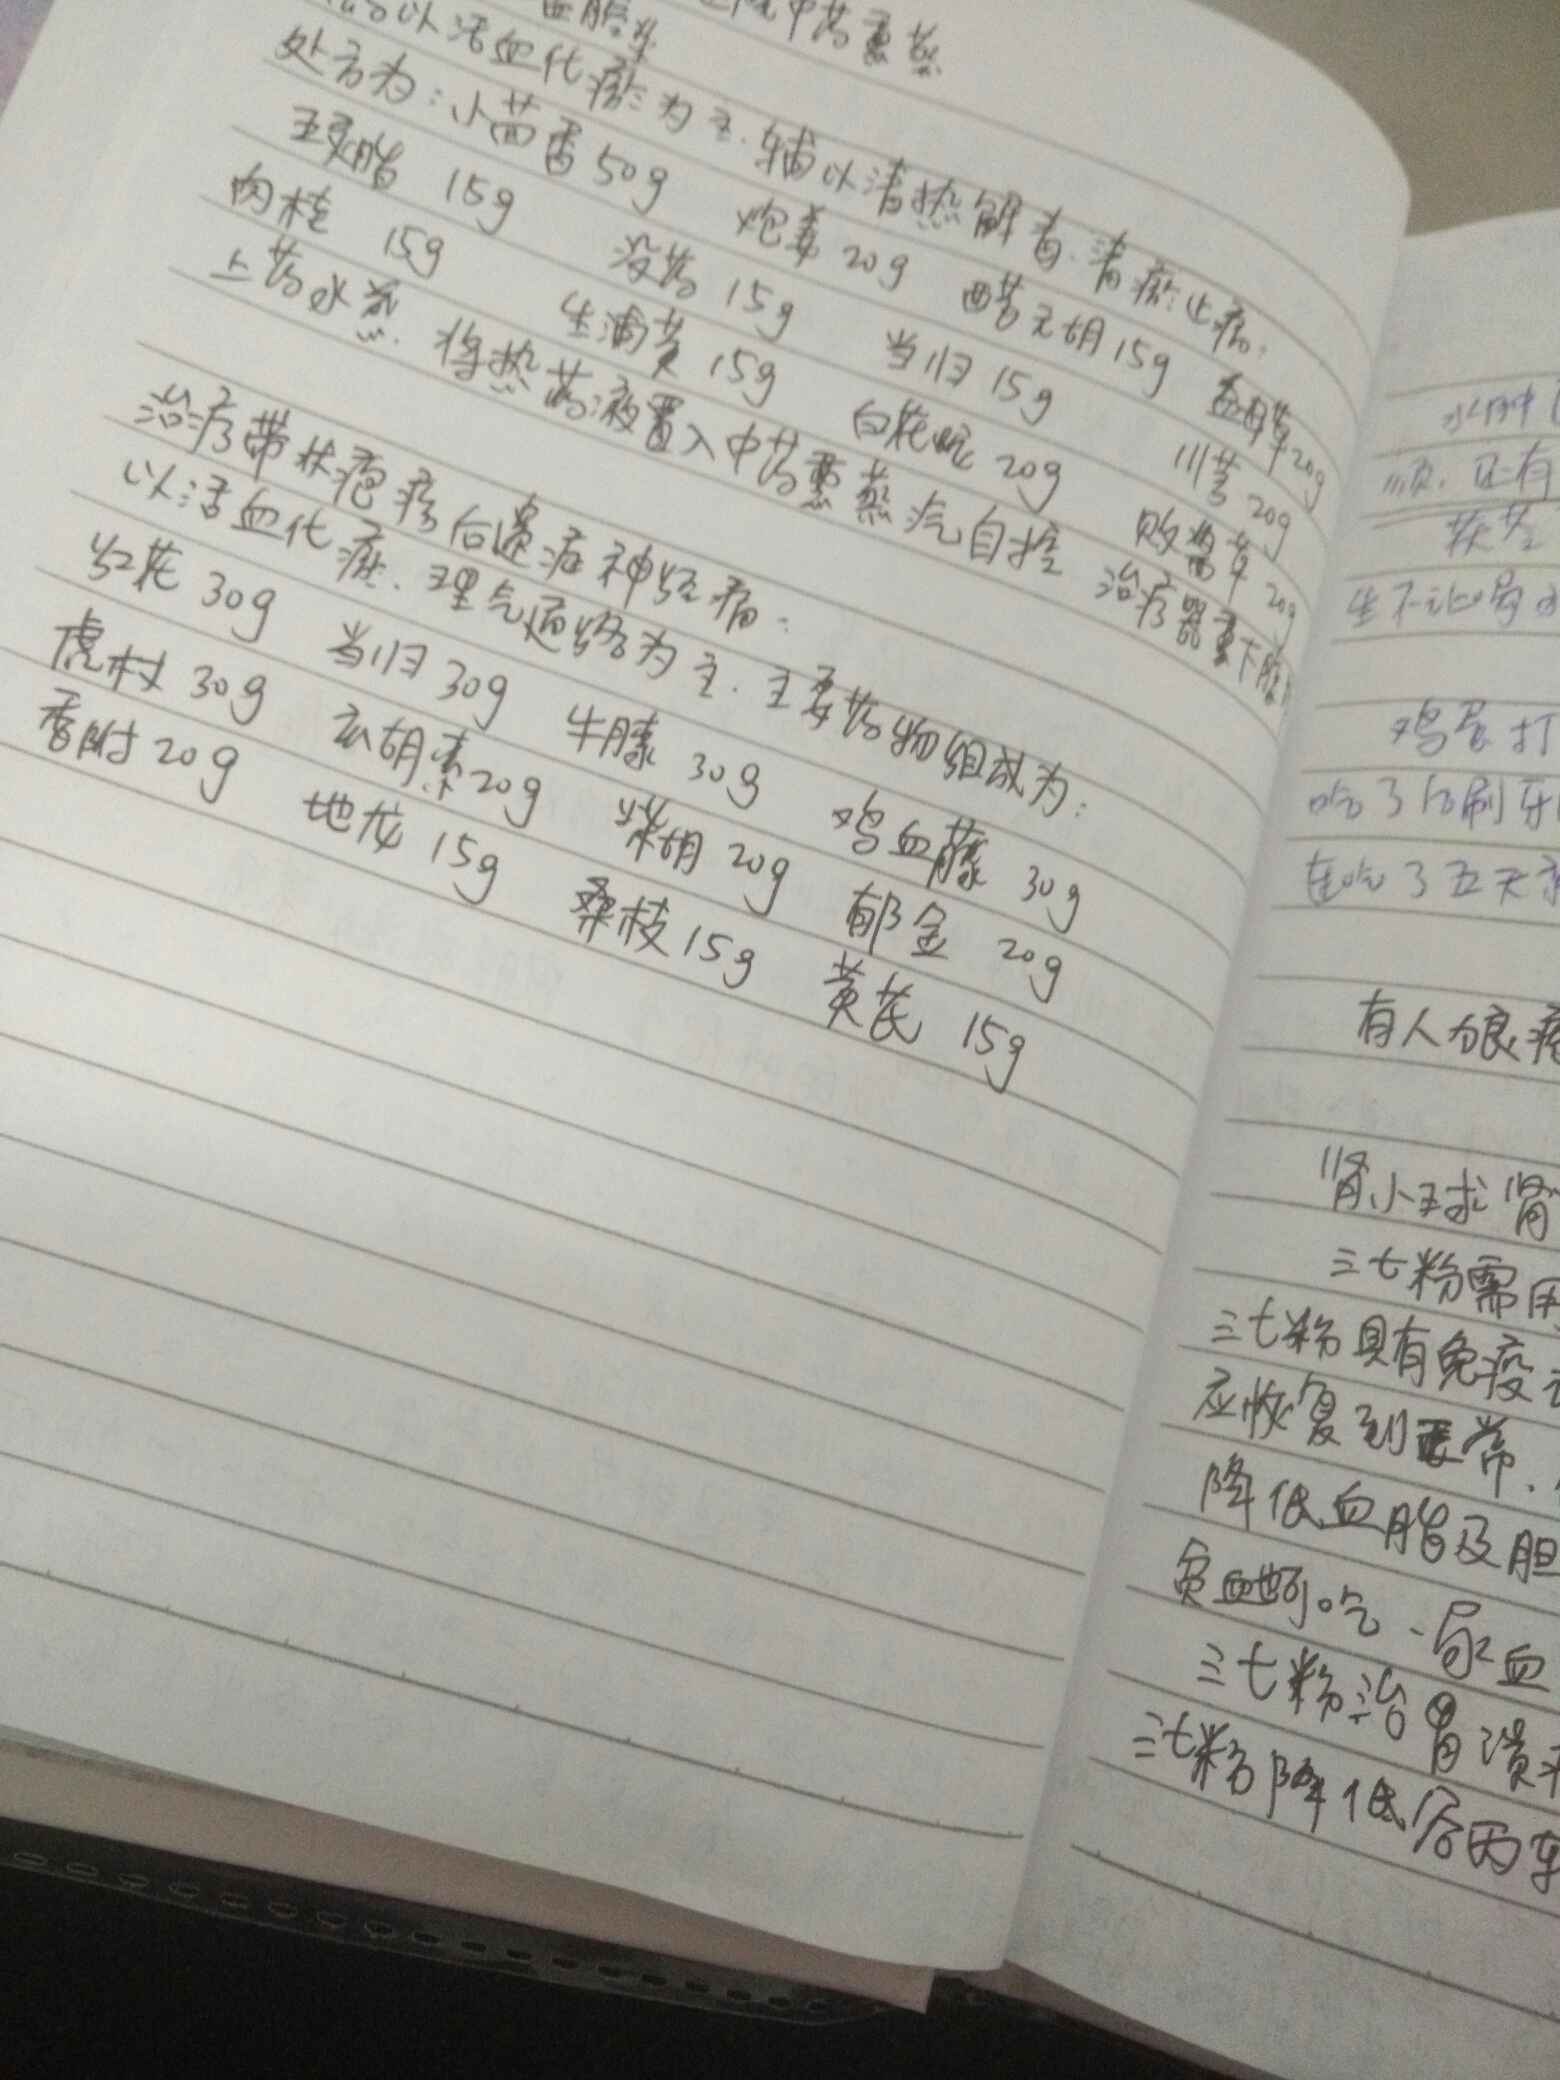 中药熏蒸
以活血化瘀为主.辅以清热解毒.清瘀止痛.
处方为:小茴香50g 炮姜20g 醋元胡15g 益母草20g
五灵脂 15g 没药 15g 当归 15g 川芎 20g
肉桂 15g 生浦黄 15g 白花蛇 20g 败酱草 20g
上药水煎.将热药液置入中药熏蒸汽自控 治疗器熏下腹
治疗带状疱疹后遗症神经痛:
以活血化瘀.理气通络为主.主要药物组成为:
红花 30g 当归 30g 牛膝 30g 鸡血藤 30g
虎杖 30g 玄胡索20g 柴胡 20g 郁金 20g
香附 20g 地龙 15g 桑枝 15g 黄芪 15g
水肿
还有
茯苓
鸡蛋打
吃了后刷牙
连吃了五天
有人
肾小球肾
三七粉需用
三七粉具有免疫
应恢复到正常.
降低血脂及胆
贫血
吃.尿血
三七粉治胃溃
三七粉降低谷丙转